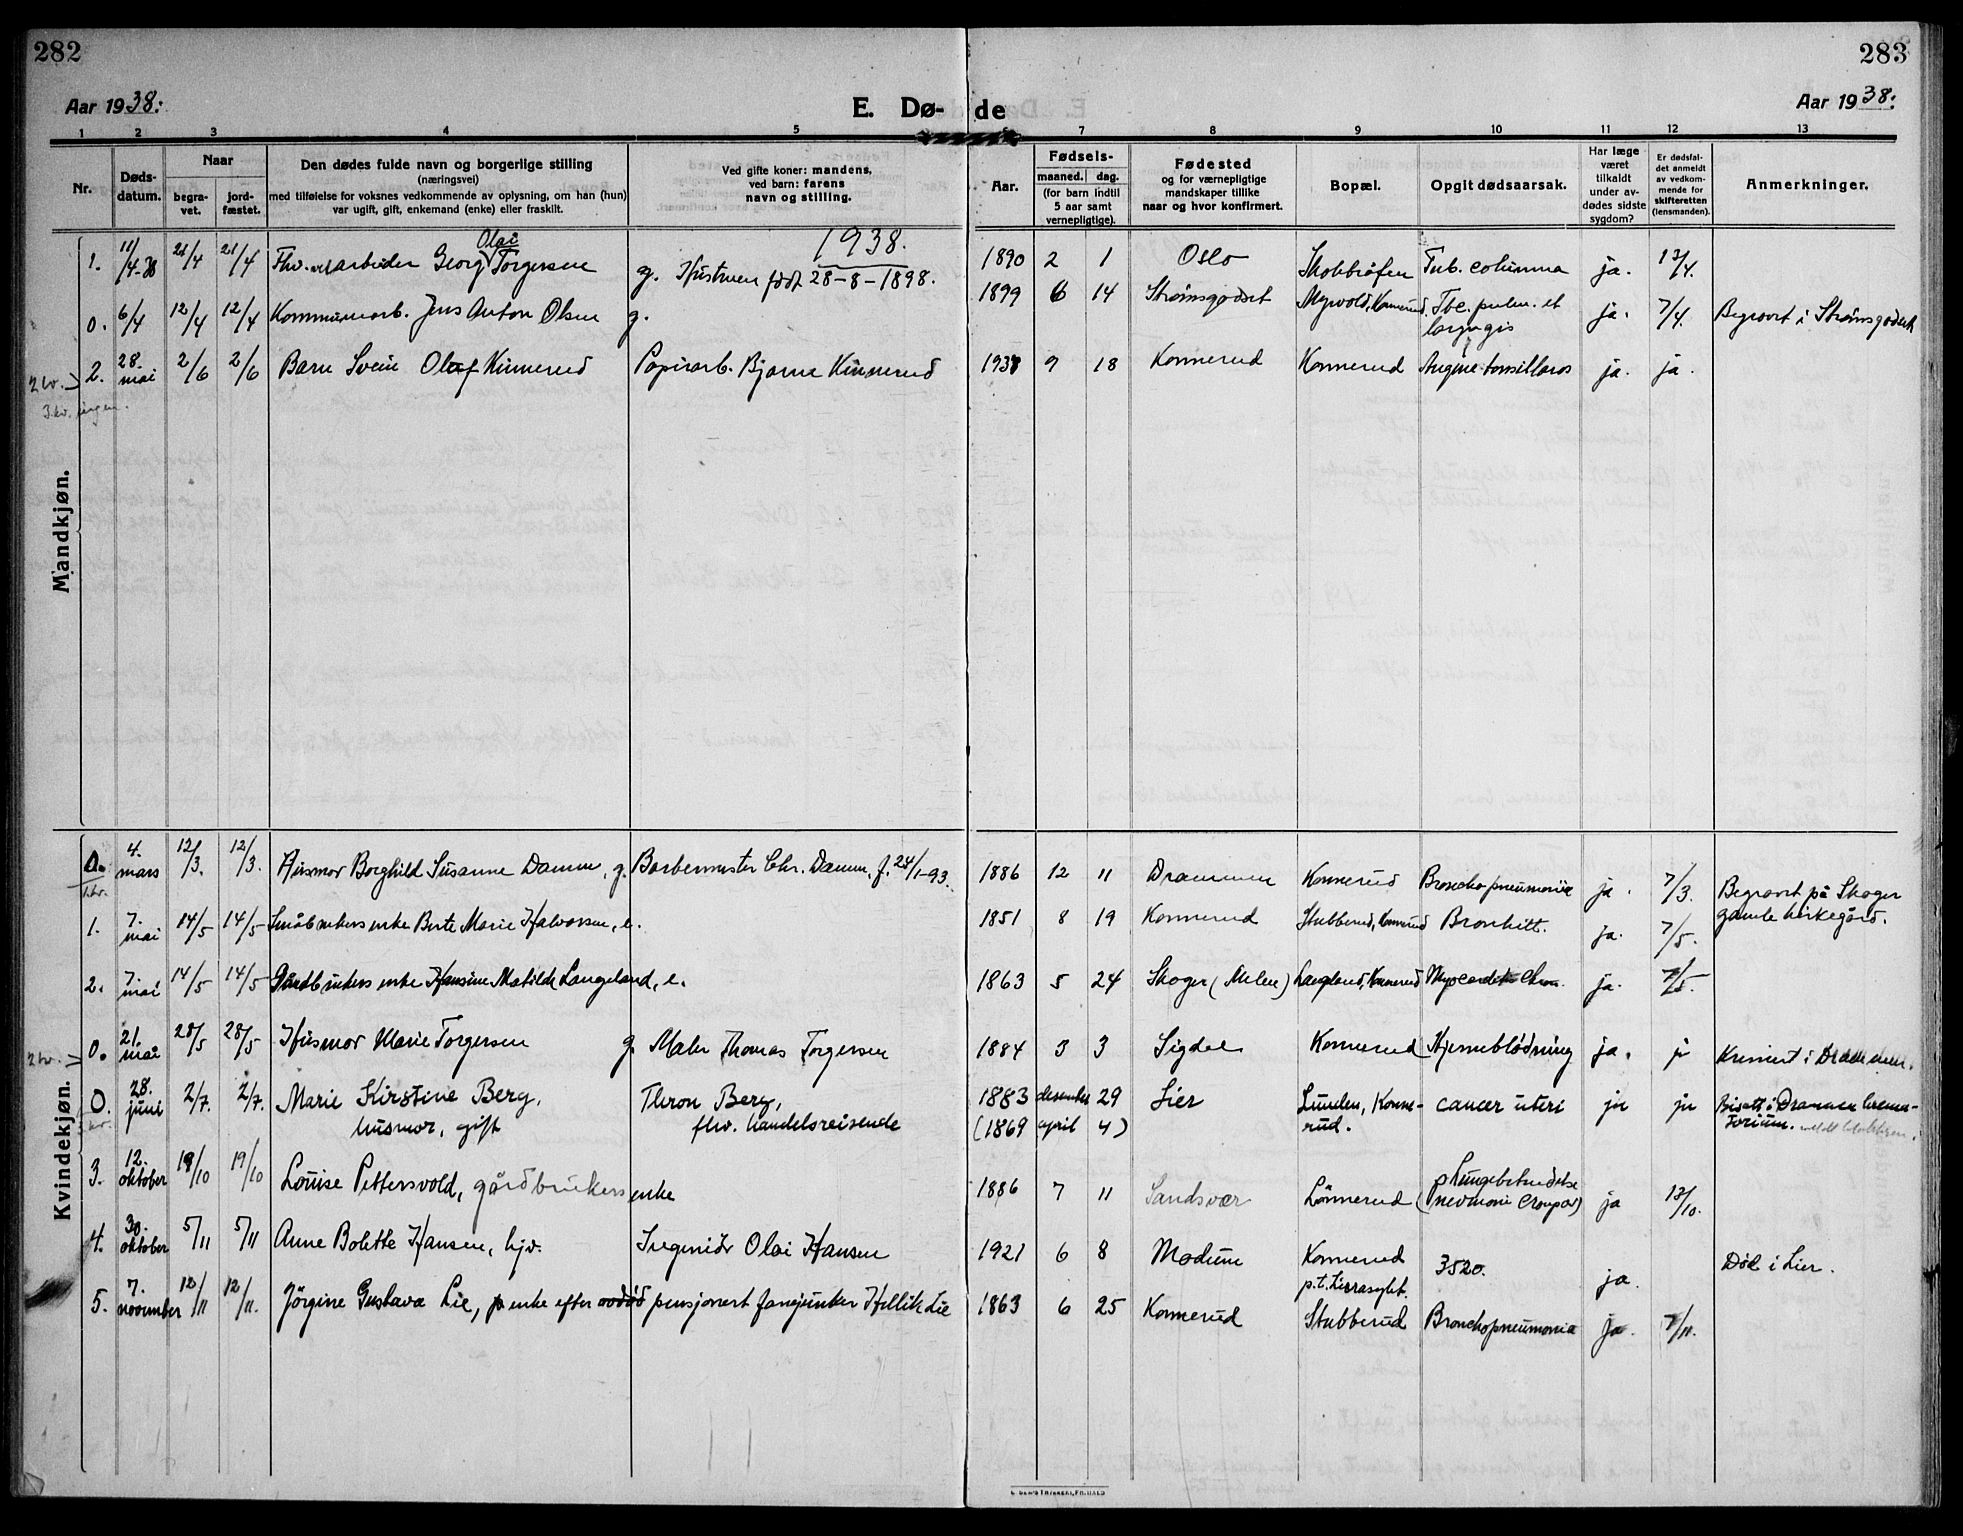 282
283
Aar 1938:
E. Dø-
de
Aar 1938:
1 2 3 4 5 7 8 9 10 11 12 13
Nr.
Døds-
datum.
Naar
begra-
vet.
jord-
fæstet.
Den dødes fulde navn og borgerlige stilling
(næringsvei)
med tilføielse for voksnes vedkommende av oplysning, om han (hun)
var ugift, gift, enkemand (enke) eller fraskilt.
Ved gifte koner: mandens,
ved barn: farens
navn og stilling.
Aar.
Fødsels-
maaned. dag.
(for barn indtil
5 aar samt
vernepligtige).
Fødested
og for værnepligtige
mandskaper tillike
naar og hvor konfirmert.
Bopæl.
Opgit dødsaarsak.
Har læge
været
tilkaldt
under av-
dødes sidste
sygdom?
Er dødsfal-
det anmeldt
av vedkom-
mende for
skifteretten
(lensmanden).
Anmerkninger.
1938.
Olai
1. 11/4-38 21/4 21/4 Fhv. arbeider Georg Torgersen g. Hustruen født 28-8-1898. 1890 2 1 Oslo Tub. columna ja. 13/4.
0. 6/4 12/4 12/4 Kommunearb. Jens Anton Olsen g. 1899 6 14 Strømsgodset Myrvold, Konnerud. Tbc. pulm. et
laryngis ja. 7/4. Begravet i Strømsgodset
2. 28.
mai 2/6 2/6 Barn Svein Olaf Kinnerud Papirarb. Bjarne Kinnerud 1937 9 18 Konnerud Konnerud Angine tonsillaros ja. ja.
2 kv.
3. kv. ingen.
Mandkjøn.
Kvindekjøn.
0. 4.
mars 12/3. 12/3. Husmor Borghild Susanne Damm, g. Barbermester Chr. Damm, f. 24/1-93. 1886 12 11 Drammen Konnerud Bronchopneumonie ja. 7/3. Begravet på Skoger
gamle kirkegård.
1.kv.
1. 7.
mai 14/5 14/5 Småbrukers enke Berte Marie Halvorsen, e. 1851 8 19 Konnerud Stubberud, Konnerud Bronkitt. ja. 7/5.
2. 7.
mai 14/5 14/5 Gårdbrukers enke Hansine Matilde Langeland, e. 1863 5 24 Skoger (Melen) Langland, Konnerud Myocardit Chron. ja. 7/5.
2 kv.
0. 21.
mai 28/5 28/5 Husmor Marie Torgersen g. Maler Thomas Torgersen 1884 3 3 Sigdal Konnerud Hjerneblødning ja. ja Kremert i Drammen.
0. 28.
juni 2/7. 2/7. Marie Kirstine Berg,
husmor, gift Theron Berg,
fhv. handelsreisende 1883 desember 29
(1869 april 4) Lier Lunden, Konne-
rud. cancer uteri ja ja Bisatt i Drammen krema-
torium.
3. 12.
oktober 19/10 19/10 Louise Pettersvold, gårdbrukers enke 1886 7 11 Sandsvær Lønnerud Lungebetendelse
(pnevmonie croupos) ja 13/10.
4. 30.
oktober 5/11 5/11 Anne Bolette Hansen, hjv. Ingeniør Olai Hansen 1921 6 8 Modum Konnerud
p.t. Lierasylet. 3520. ja. Død i Lier.
5. 7.
november 12/11 12/11. Jörgine Gustava Lie, enke efter avdød pensjonert fanejunker Hellik Lie 1863 6 25 Konnerud Stubberud Bronchopneumonia ja. 7/11.